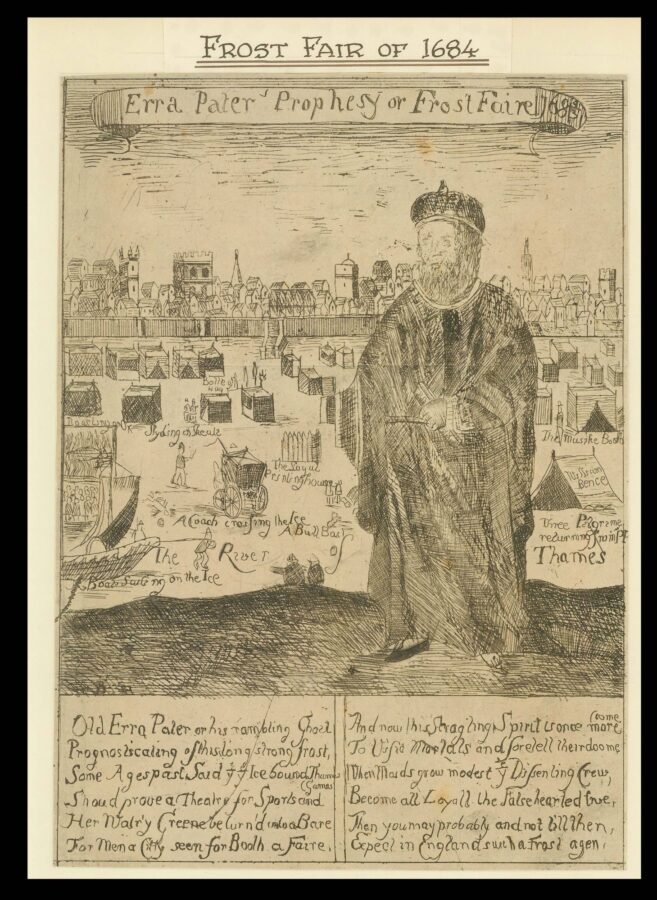 FROST FAIR OF 1684
Erra Pater's Prophesy or Frost Faire
Booths
Ryding on
The Loyal
Printing house
The Musike Booth
A Coach crossing the Ice
A Bull
Three Pilgrims
returning from
The River of Thames
Boats Sailing on the Ice
Old Erra Pater or his rambling Ghost
Prognosticating of this long strong frost,
Some Ages past Said yt ye Ice bound Thames
Shoud prove a Theatre for Sports and Games
Her Wat'ry Greene be turn'd into a Bare
For Men a Citty seem for Booths a Faire,
And now this Stragling Spirit is once more come
To Visit Mortals and foretell their doome
When Maids grow modest ye Dissenting Crew
Become all Loyall the Falsehearted true,
Then you may probably and not till then,
Expect in England such a Frost agen,